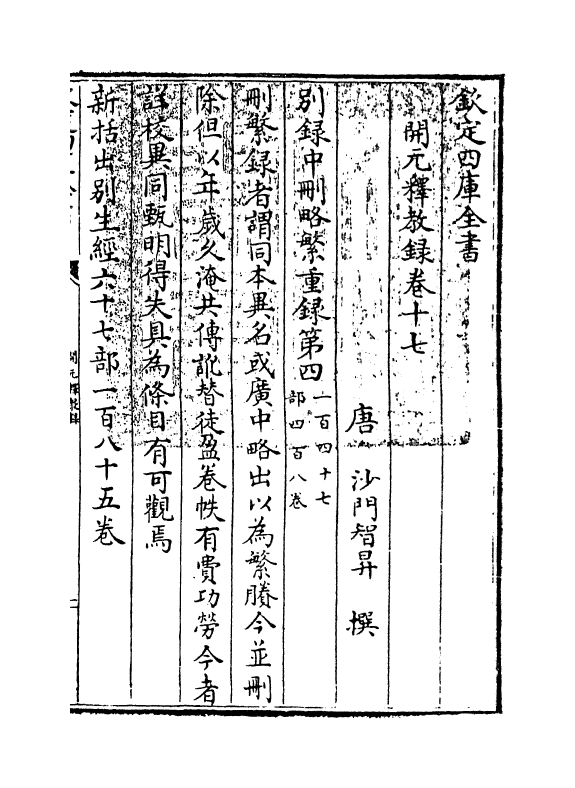 欽定四庫全書
開元釋教録卷十七
唐 沙門智昇 撰
别録中刪略繁重録第四一百四十七部四百八卷
刪繁録者謂同本異名或廣中略出以為繁賸今並刪
除但以年歲久淹共傳訛替徒盈卷帙有費功勞今者
詳校異同甄明得失具為條目有可觀焉
新括出别生經六十七部一百八十五卷
開元釋教録